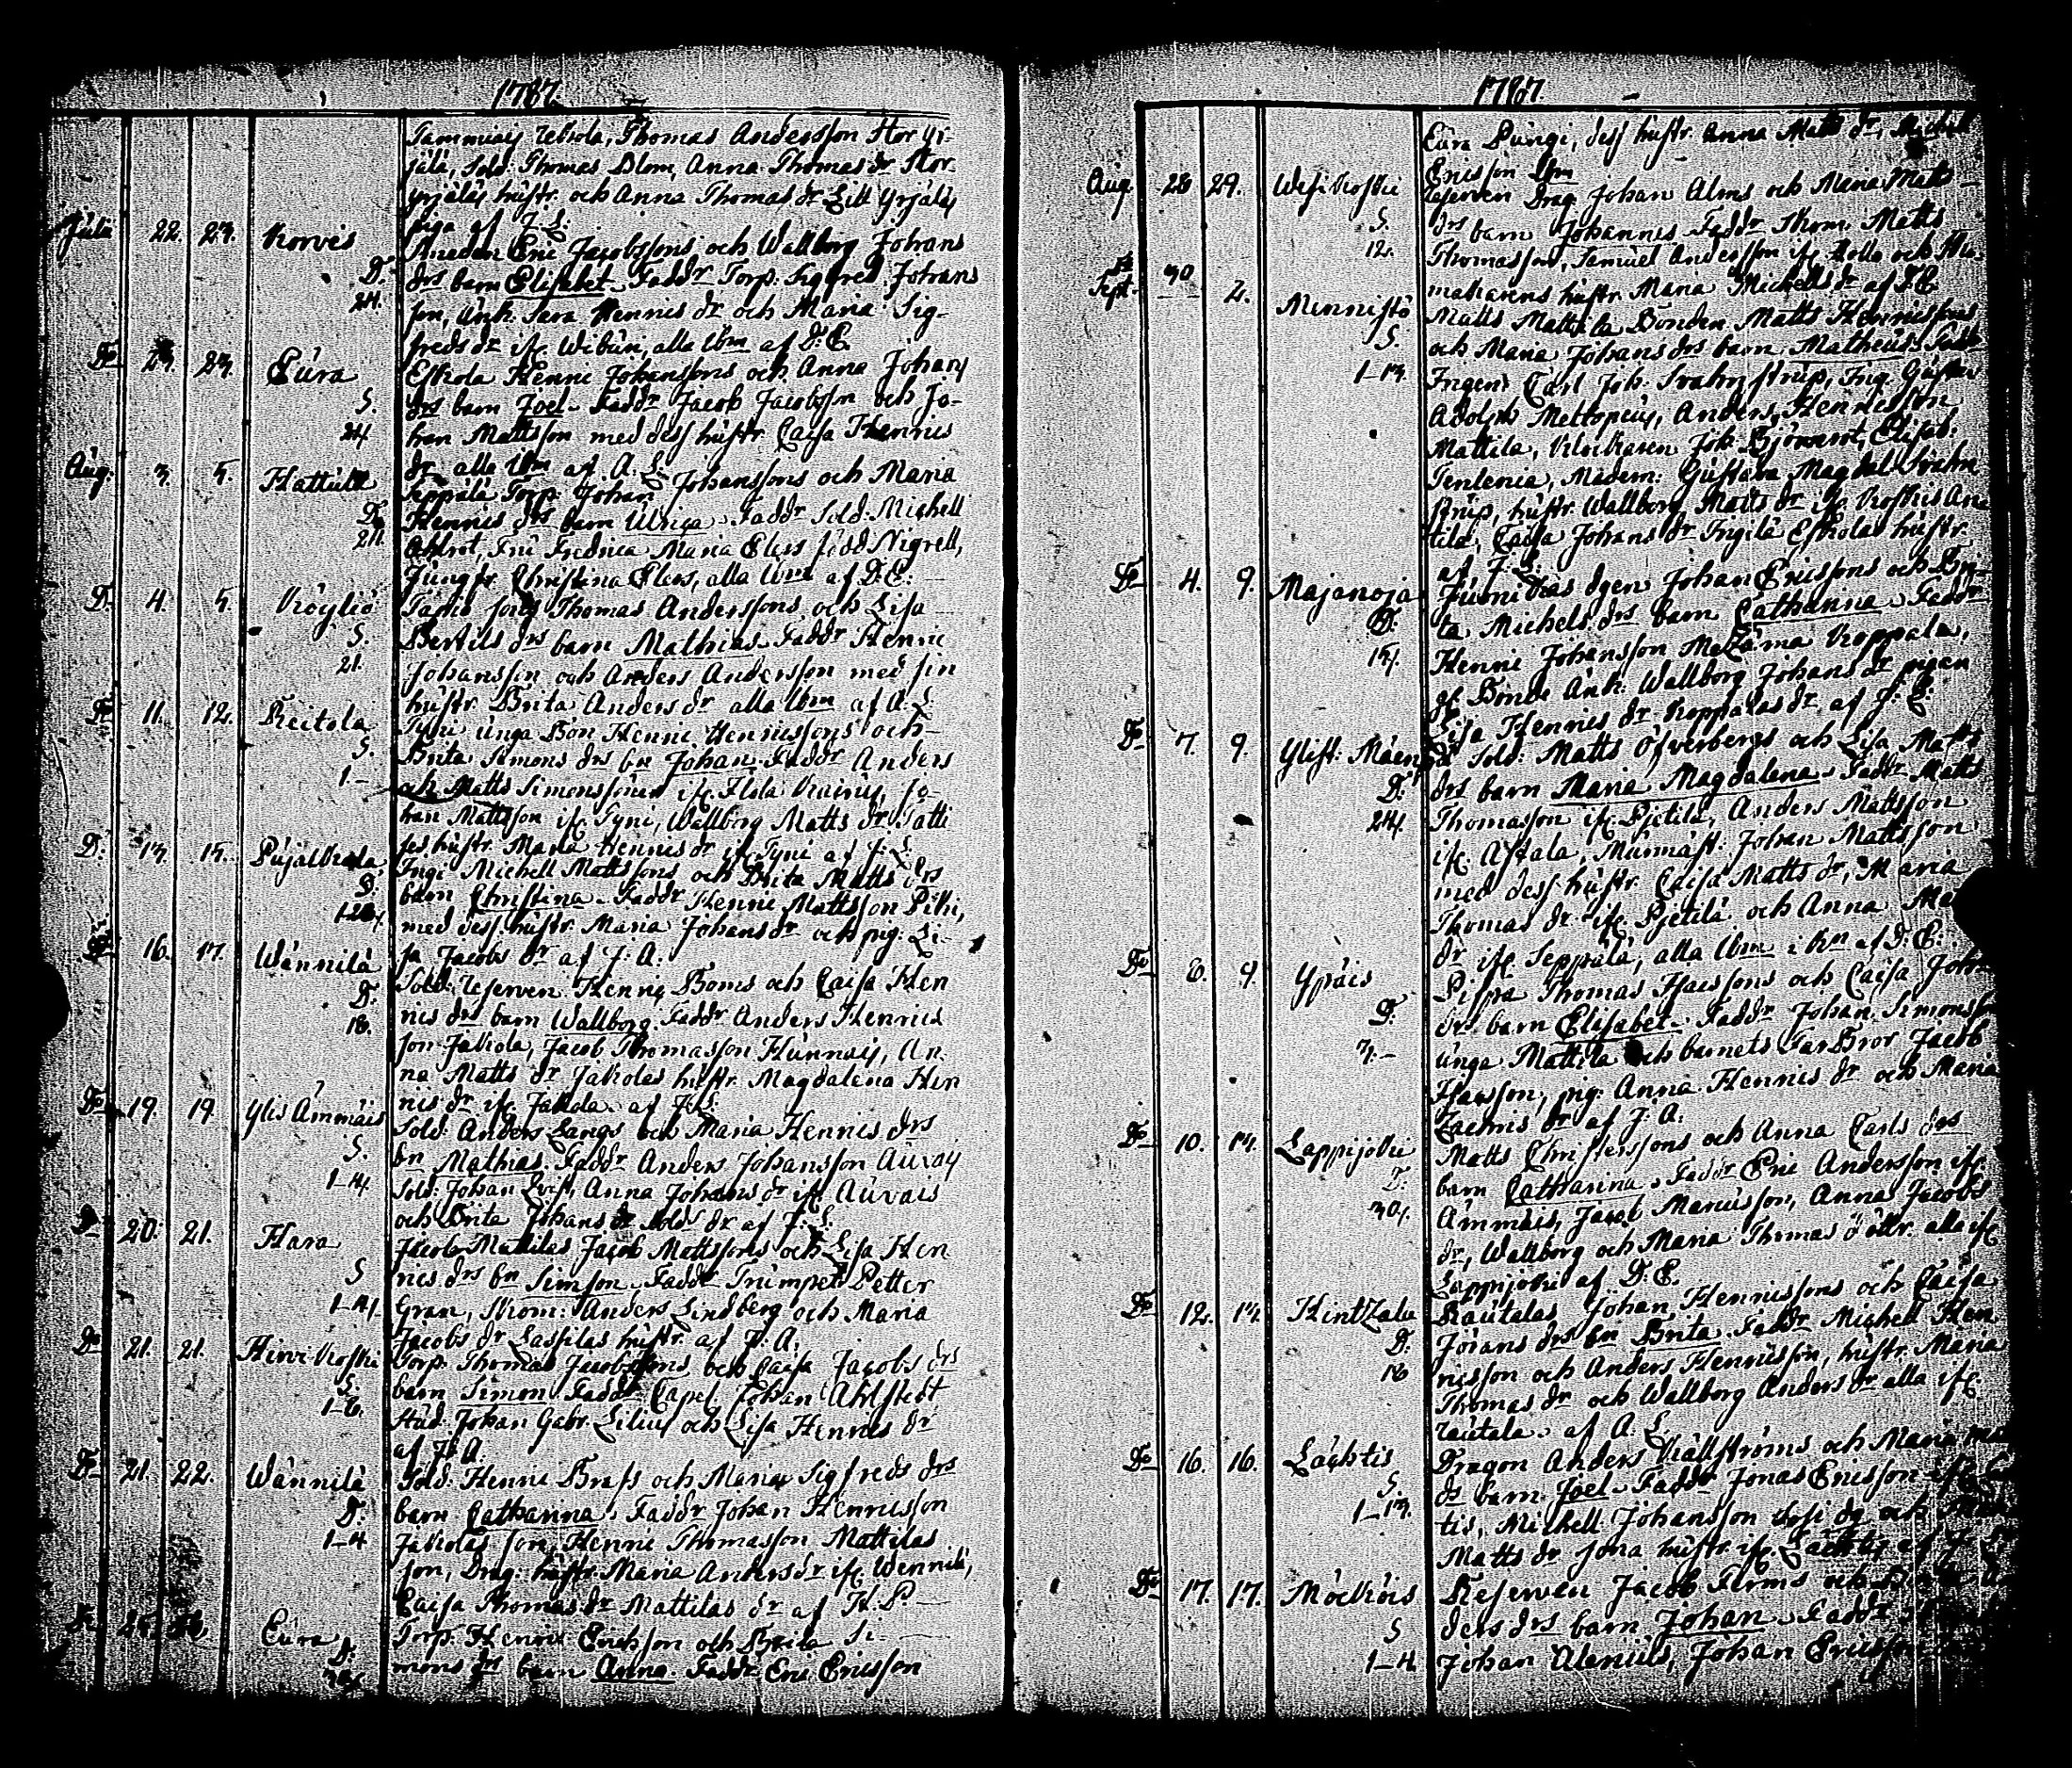 1787.
Tammiais Uskola, Thomas Andersson Stor Yr-
jälä, Sold. Thomas Blom, Anna Thomas dr Stor
yrjäläs hustr. och Anna Thomas dr Lill Yrjäläs
piga af J. L.
Julii 22. 23. Korvis Smeden Eric Jacobssons och Wallborg Johans
D. drs barn Elisabet. Faddr Torp. Sigfred Johans
24. son, Änk. Sara Hennis dr och Maria Sig-
freds dr ifr. Wibun, alla Ibm af D. E.
Do 23. 23. Eura Eskola Henric Johanssons och Anna Johans
S. drs barn Joel. Faddr Jacob Jacobsson och Jo-
24 han Mattsson med dess hustr. Caisa Hennis
dr alla Ibm af A. L.
Aug. 3. 5. Hattula Seppälä Torp. Johan Johanssons och Maria
D. Hennis drs barn Ulrica. Faddr Sold. Michell
24. Ahlrot, Fru Fredrica Maria Elers född Nigrell,
Jungfr. Christina Elers, alla Ibm af D. E.
D. 4. 5. Kiöyliö Tapio sons Thomas Anderssons och Lisa
S. Bertils drs barn Mathias. Faddr Henric
21. Johansson och Anders Andersson med sin
hustr. Brita Anders dr alla Ibm af A. L.
Do 11. 12. Reitola Tyni unga Bon. Henric Henricssons och
S. Brita Simons drs bn Johan. Faddr Anders
1- och Matts Simonssöner ifr. Isola Knuus, Jo-
han Mattsson ifr. Tyni, Wallborg Matts dr Tatti
ses hustr. Maria Hennis dr ifr. Tyni af J. L.
D. 13. 15. Pujalkala Ingi Michell Mattssons och Brita Matts drs
D. barn Christina. Faddr Henric Mattsson Piki,
med dess hustr. Maria Johans dr och pig. Li-
sa Jacobs dr af J. A.
Do 16. 17. Wännilä Sold. Reserven Henric Boms och Caisa Hen
D. nis drs barn Wallborg. Faddr Anders Henrics
18. son Jakola, Jacob Thomasson Hunnais, An-
na Matts dr Jakolas hustr. Magdalena Hen
nis dr ifr. Jakola. af J. L.
Do 19. 19. Ylis Ämmäis Sold. Anders Långs och Maria Hennis drs
S. bn Mathias. Faddr Anders Johansson Auvais
1-14. Sold. Johan Qvist, Anna Johans dr ifr. Auvais
och Brita Johans dr Sold. dr af J. L.
Do 20. 21. Hara Jacob Mattilas Jacob Mattssons och Lisa Hen
S nis drs bn Simson. Faddr Trumpet. Petter
1-14. Gran, Skom. Anders Lindberg och Maria
Jacobs dr Lassilas hustr. af J. A.
Do 21. 21. Hirvikoski Torp. Thomas Jacobssons och Caisa Jacobs drs
S. barn Simon. Faddr Capel. Johan Ahlstedt
1-6. Stud. Johan Gabr. Lilius och Lisa Hennis dr
af J. A.
Do 21. 22. Wännilä Sold. Henric Brass och Maria Sigfreds drs
D. barn Catharina. Faddr Johan Henricsson
1-4 Jakolas son, Henric Thomasson Mattilas
son, Drag. hustr. Maria Anders dr ifr. Wennilä,
Caisa Thomas dr Mattilas dr af H. P.
Eura Torp. Henric Ericksson och Brita Si-
D. mons drs barn Anna. Faddr Eric Ericsson
1787.
Eura Pungi, dess hustr. Anna Matts dr, Michell
Ericsson Ibm
Aug. 28 29. Wesikoski Reserven Drag. Johan Alms och Maria Matts
S. drs barn Johannes. Faddr Skom. Matts
12. Thomasson, Samuel Andersson ifr. Kollo och Hu-
makarens hustr. Maria Michells dr af D. E.
Sept. 30 2. Mennistö Matts Mattila Bonden Matts Henricssons
S. och Maria Johans drs barn Matheus. Faddr
1-13. Ingeni. Carl Joh. Svahnström, Ing. Gustav
Adolph Mettopeus, Anders Henricsson
Mattila, Klockaren Joh. Björnerot, Elisab.
Tenlenia, Madem. Gustava Magdal. Svahn
strup, hustr. Wallborg Matts dr ifr. Koskis An
tila, Caisa Johans dr Ingilä Eskolas hustr.
af J. L.
Do 4. 9. Majanoja Juonikas ägen Johan Ericssons och Bri-
D. ta Michels drs barn Catharina. Faddr
Henric Johansson Mezämä Koppala,
gf. Bonde Änk. Wallborg Johans dr pigan
Lisa Hennis dr Koppalas dr. af J. L.
Do 7. 9. Ylist. Mäenpä Sold. Matts Öfverbergs och Lisa Matts
D. drs barn Maria Magdalena. Faddr Matts
24. Thomasson ifr. Pietilä, Anders Mattsson
ifr. Astala, Murmäst. Johan Mattsson
med dess hustr. Caisa Matts dr, Maria
Thomas dr ifr. Pietilä och Anna
dr ifr. Seppälä, alla Ibm i Kn af D. E.
Do 8. 9. Ypäis Pispa Thomas Isacssons och Caisa Joh
D. drs barn Elisabet. Faddr Johan Simonss
7.- unga Mattila och barnets Far Bror Jacob
Isacsson, pig. Anna Hennis dr och Maria
dr af J. A.
Do 10. 14. Lappijoki Matts Christerssons och Anna Carls drs
D. barn Catharina. Faddr Eric Andersson ifr.
30. Ämmäis, Jacob Marcusson, Anna Jacobs
dr, Wallborg och Maria Thomas döttr. alla ifr.
Lappijoki af D. E.
Do 12. 14. Hintzala Rautalas Johan Henricssons och Caisa
D. Jörans drs bn Brita. Faddr Michell Hen
18 ricsson och Anders Henricsson, hustr. Maria
Thomas dr och Wallborg Anders dr alla ifr.
Rautala. af A. L.
Do 16. 16. Lächtis Dragon Anders Källströms och Maria
S. dr barn Joel. Faddr Jonas Ericsson ifr.
1-13. tis, Michell Johansson Sosi dg och
Matts dr Jona hustr. ifr. Lächtis af J. L.
Do 17. 17. Möckiöis Reserven Jacob Forms och
S ders drs barn Johan. Faddr
1-4 Johan Alenius, Johan Ericsson